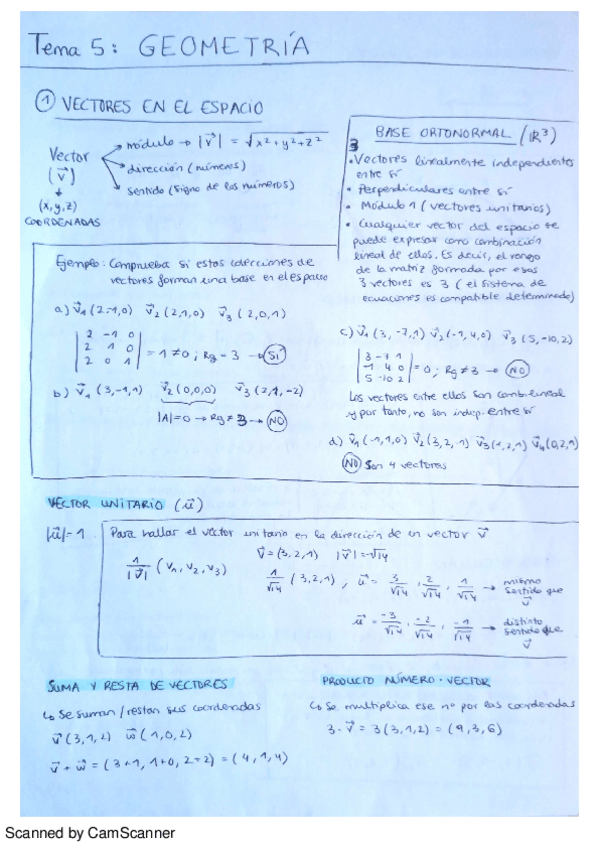 Tema 5: GEOMETRÍA
① VECTORES EN EL ESPACIO
Vector (v⃗)
→ módulo → |v⃗| = √x²+y²+z²
→ dirección (números)
→ sentido (signo de los números)
(x,y,z)
COORDENADAS
BASE ORTONORMAL (ℝ³)
3
• Vectores linealmente independientes
entre sí
• Perpendiculares entre sí
• Módulo 1 (vectores unitarios)
• Cualquier vector del espacio se
puede expresar como combinación
lineal de ellos. Es decir, el rango
de la matriz formada por esos
3 vectores es 3 (el sistema de
ecuaciones es compatible determinado)
Ejemplo: Comprueba si estas colecciones de
vectores forman una base en el espacio
a) v⃗₁ (2,-1,0) v⃗₂ (2,1,0) v⃗₃ (2,0,1)
| 2 -1 0 |
| 2 1 0 | = 1 ≠ 0 ; Rg = 3 → SÍ
| 2 0 1 |
b) v⃗₁ (3,-1,1) v⃗₂ (0,0,0) v⃗₃ (2,1,-2)
|A|=0 → Rg ≠ 3 → NO
c) v⃗₁ (3,-7,1) v⃗₂ (-1,4,0) v⃗₃ (5,-10,2)
| 3 -7 1 |
| -1 4 0 | = 0 ; Rg ≠ 3 → NO
| 5 -10 2 |
Los vectores entre ellos son comb. lineal
y por tanto, no son indep. entre sí
d) v⃗₁ (-1,1,0) v⃗₂ (3,2,-1) v⃗₃ (1,2,1) v⃗₄ (0,2,1)
NO Son 4 vectores
VECTOR UNITARIO (u⃗)
|u⃗|=1
Para hallar el vector unitario en la dirección de un vector v⃗
1/|v⃗| (v₁, v₂, v₃)
v⃗ = (3,2,1) |v⃗| = √14
1/√14 (3,2,1) ; u⃗ = 3/√14 , 2/√14 , 1/√14 → mismo sentido que v⃗
u⃗ = -3/√14 , -2/√14 , -1/√14 → distinto sentido que v⃗
SUMA Y RESTA DE VECTORES
↳ Se suman/restan sus coordenadas
v⃗ (3,1,2) w⃗ (1,0,2)
v⃗ + w⃗ = (3+1, 1+0, 2+2) = (4,1,4)
PRODUCTO NÚMERO · VECTOR
↳ Se multiplica ese nº por las coordenadas
3 · v⃗ = 3 (3,1,2) = (9,3,6)
Scanned by CamScanner